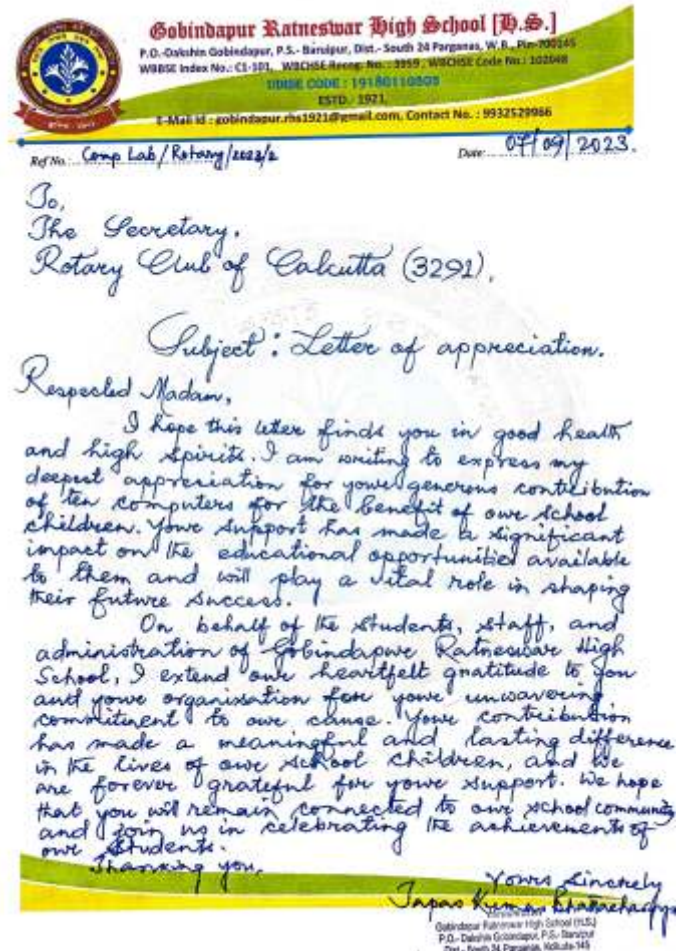 Gobindapur Ratneswar High School [H.S.]
P.O.-Dakshin Gobindapur, P.S.- Baruipur, Dist.- South 24 Parganas, W.B., Pin-700145
WBBSE Index No.: C1-101, WBCHSE Recog. No. : 3959, WBCHSE Code No.: 102048
UDISE CODE : 19180110803
ESTD.- 1921,
E-Mail id : gobindapur.rhs1921@gmail.com, Contact No. : 9932529966
Ref No. Comp Lab/Rotary/2023/2 Date: 07/09/2023.
To,
The Secretary.
Rotary Club of Calcutta (3291),
Subject : Letter of appreciation.
Respected Madam,
I hope this letter finds you in good health
and high spirits. I am writing to express my
deepest appreciation for your generous contribution
of ten computers for the benefit of our school
children. Your support has made a significant
impact on the educational opportunities available
to them and will play a vital role in shaping
their future success.
On behalf of the students, staff, and
administration of Gobindapur Ratneswar High
School, I extend our heartfelt gratitude to you
and your organisation for your unwavering
commitment to our cause. Your contribution
has made a meaningful and lasting difference
in the lives of our school children, and we
are forever grateful for your support. We hope
that you will remain connected to our school community
and join us in celebrating the achievements of
our students.
Thanking you,
Yours sincerely
Tapas Kumar Bhattacharyya
Gobindapur Ratneswar High School (H.S.)
P.O.- Dakshin Gobindapur, P.S.- Baruipur
Dist.- South 24 Parganas, Kolkata-145